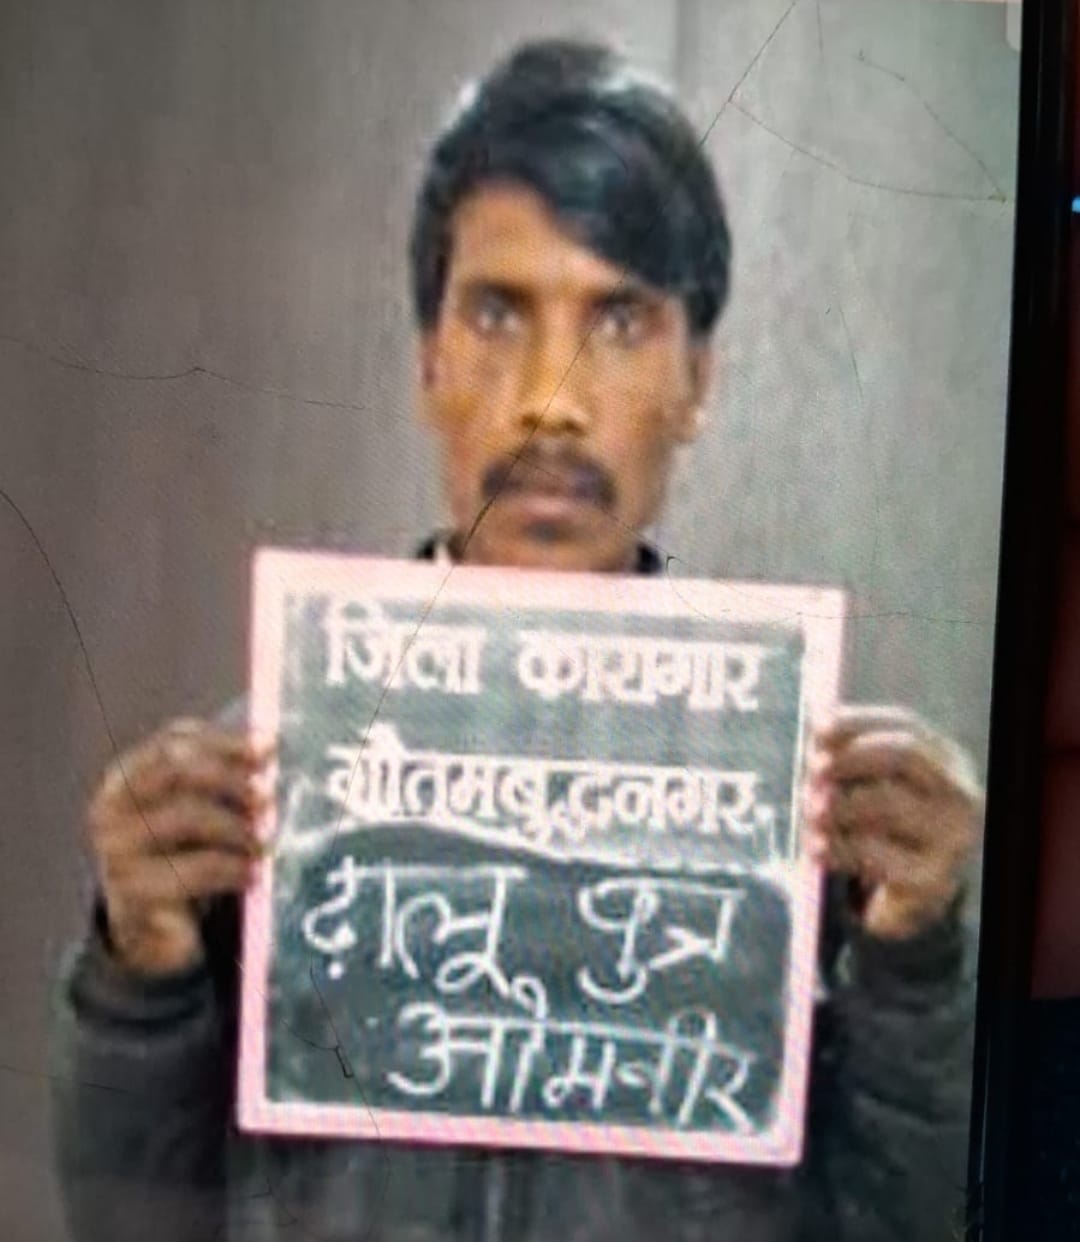 जिला कारागार
गौतमबुद्धनगर.
ढ़ालू पुत्र
ओमवीर